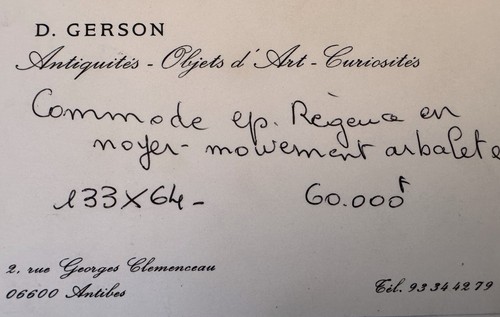 D. GERSON
Antiquités - Objets d'Art - Curiosités
Commode ep. Règence en
noyer - mouvement arbalete
133X64 - 60.000F
2, rue Georges Clemenceau
06600 Antibes Tél. 93 34 42 79